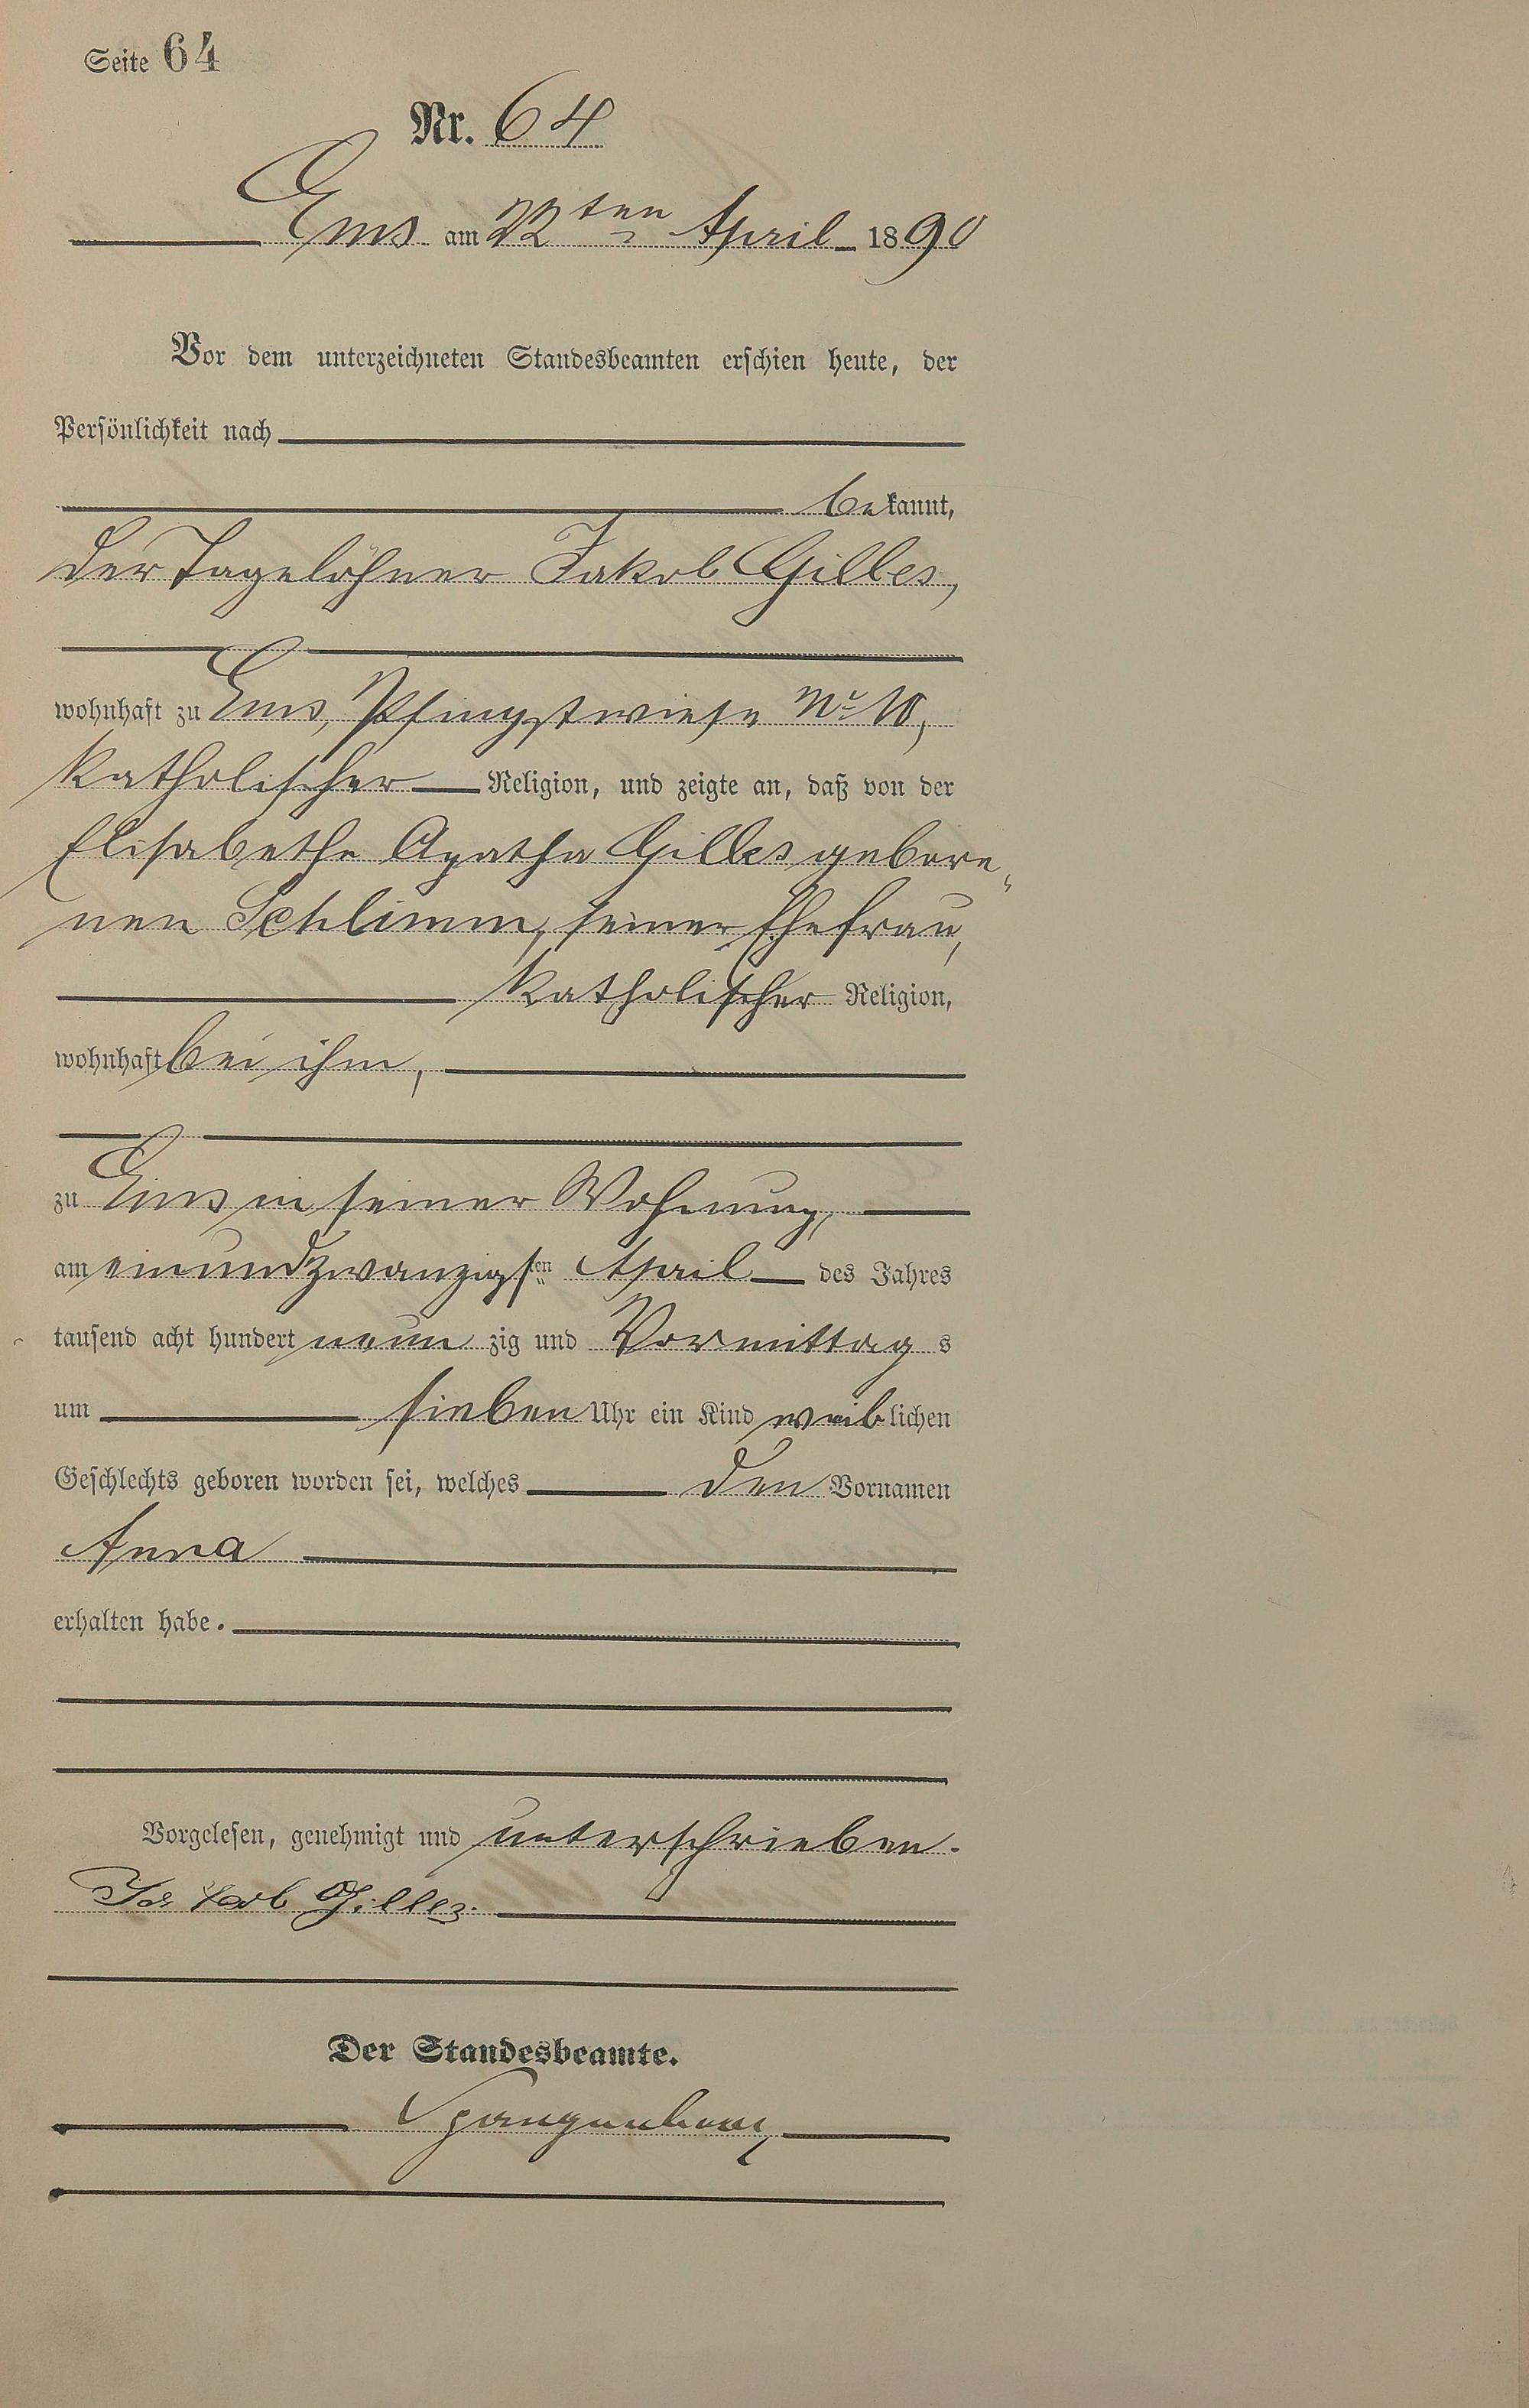 Seite 64
Nr. 64
Ems am 22ten April 1890
Vor dem unterzeichneten Standesbeamten erschien heute, der
Persönlichkeit nach
bekannt,
der Tagelöhner Jakob Gilles,
wohnhaft zu Ems, Pfingstwiese No 10,
katholischer Religion, und zeigte an, daß von der
Elisabethe Agatha Gilles gebore„
nen Schlimm, seiner Ehefrau,
katholischer Religion,
wohnhaft bei ihm,
zu Ems in seiner Wohnung,
am einundzwanzigsten April des Jahres
tausend acht hundert neun zig und Vormittag s
um sieben Uhr ein Kind weiblichen
Geschlechts geboren worden sei, welches den Vornamen
Anna
erhalten habe.
Vorgelesen, genehmigt und unterschrieben.
Jakob Gilles.
Der Standesbeamte.
Spangenberg